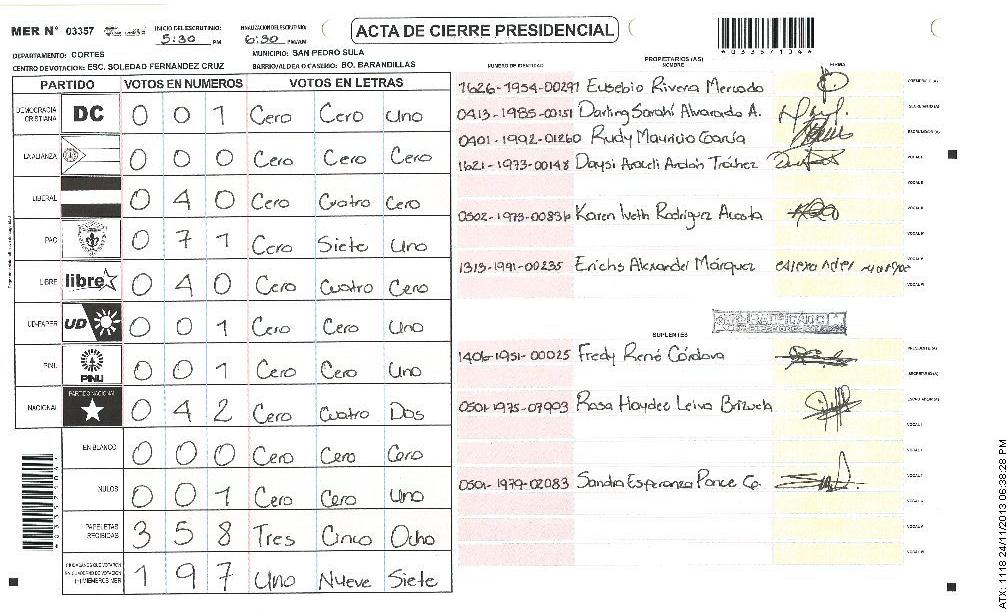 MER N° 03357 INICIO DEL ESCRUTINIO: 5:30 PM FINALIZACION DEL ESCRUTINIO: 6:30 PM/AM ACTA DE CIERRE PRESIDENCIAL
DEPARTAMENTO: CORTES MUNICIPIO: SAN PEDRO SULA
CENTRO DE VOTACION: ESC. SOLEDAD FERNANDEZ CRUZ BARRIO/ALDEA O CASERIO: BO. BARANDILLAS
PARTIDO VOTOS EN NUMEROS VOTOS EN LETRAS
DEMOCRACIA CRISTIANA DC 0 0 1 Cero Cero Uno
LA ALIANZA 0 0 0 Cero Cero Cero
LIBERAL 0 4 0 Cero Cuatro Cero
PAC 0 7 1 Cero Siete Uno
LIBRE libre 0 4 0 Cero Cuatro Cero
UD-FAPER UD 0 0 1 Cero Cero Uno
PINU PINU 0 0 1 Cero Cero Uno
NACIONAL PARTIDO NACIONAL 0 4 2 Cero Cuatro Dos
EN BLANCO 0 0 0 Cero Cero Cero
NULOS 0 0 1 Cero Cero Uno
PAPELETAS RECIBIDAS 3 5 8 Tres Cinco Ocho
CIUDADANOS QUE VOTARON EN CUADERNO DE VOTACION (+) MIEMBROS MER 1 9 7 Uno Nueve Siete
PROPIETARIOS (AS)
NUMERO DE IDENTIDAD NOMBRE FIRMA
1626-1954-00297 Eusebio Rivera Mercado
0413-1985-00151 Darling Sarahí Alvarado A.
0401-1992-01260 Rudy Mauricio García
1621-1973-00148 Daysi Araceli Ardón Tróchez
0502-1973-00836 Karen Iveth Rodríguez Acosta
1313-1991-00235 Erichs Alexander Márquez
SUPLENTES
1406-1951-00025 Fredy René Córdova
0501-1975-07903 Rosa Haydee Leiva Brizuela
0501-1979-02083 Sandra Esperanza Ponce
ATX: 1118 24/11/2013 06:38:28 PM